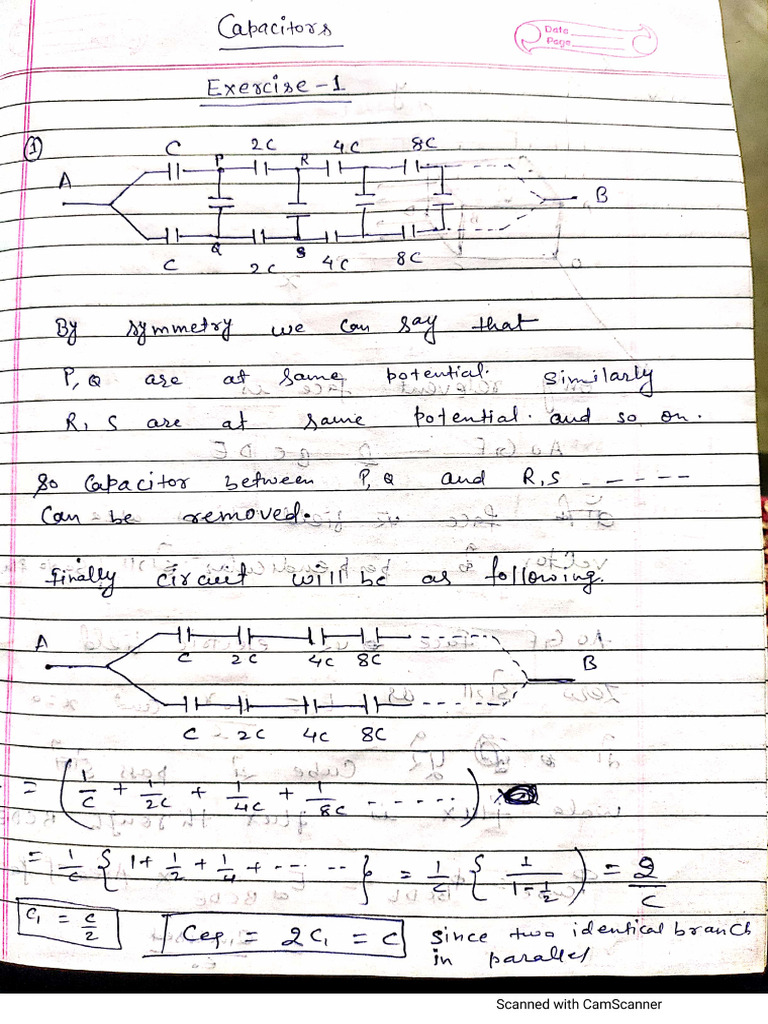 Capacitors
Date
Page
Exercise-1
①
C 2C 4C 8C
A P R B
Q S
C 2C 4C 8C
By symmetry we can say that
P, Q are at same potential. similarly
R, S are at same potential. and so on.
So capacitor between P, Q and R, S - - - - -
can be removed.
finally circuit will be as following.
A C 2C 4C 8C B
C 2C 4C 8C
= (1/C + 1/2C + 1/4C + 1/8C ......)
= 1/C {1 + 1/2 + 1/4 + -- - --} = 1/C {1/(1-1/2)) = 2/C
C₁ = C/2 Ceq = 2C₁ = C since two identical branch
in parallel
Scanned with CamScanner